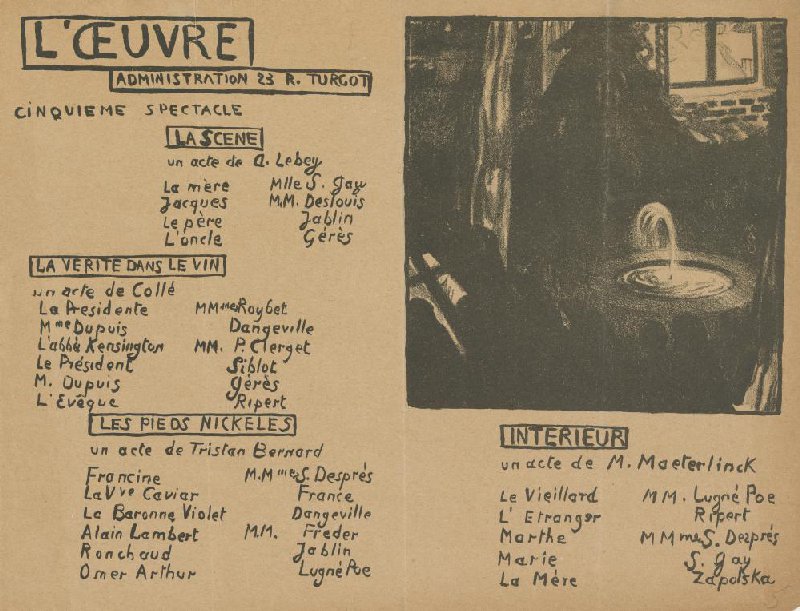 L'ŒUVRE
ADMINISTRATION 23 R. TURGOT
CINQUIEME SPECTACLE
LA SCENE
un acte de A. Lebey
La mère Mlle S. Gay
Jacques M.M. Deslouis
Le père Jablin
L'oncle Gérès
LA VERITE DANS LE VIN
un acte de Collé
La Presidente MMmes Raybet
Mme Dupuis Dangeville
L'abbé Kensington MM. P. Clerget
Le Président Siblot
M. Dupuis Gérès
L'Evêque Ripert
LES PIEDS NICKELES
un acte de Tristan Bernard
Francine M.Mmes S. Després
La Vve Caviar France
La Baronne Violet Dangeville
Alain Lambert M.M. Freder
Ranchaud Jablin
Omer Arthur Lugné Poe
INTERIEUR
un acte de M. Maeterlinck
Le Vieillard MM. Lugné Poe
L'Etranger Ripert
Marthe MMmes S. Després
Marie S. Gay
La Mère Zapolska